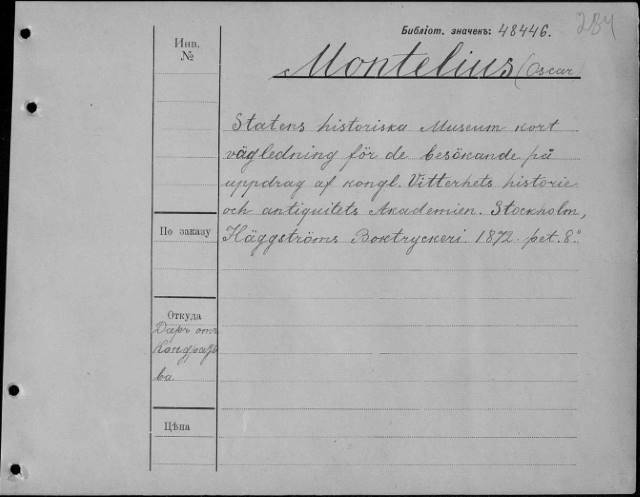 284
Библіот. значекъ: 48446.
Инв. №
Montelius (Oscar)
Statens historiska Museum kort
vägledning för de besökande på
uppdrag af kongl. Vitterhets historie
och antiquitets Akademien. Stockholm,
Häggströms Boktryckeri 1872. pet. 8°.
По заказу
Откуда
Даръ отъ
Кондратье
ва
Цѣна